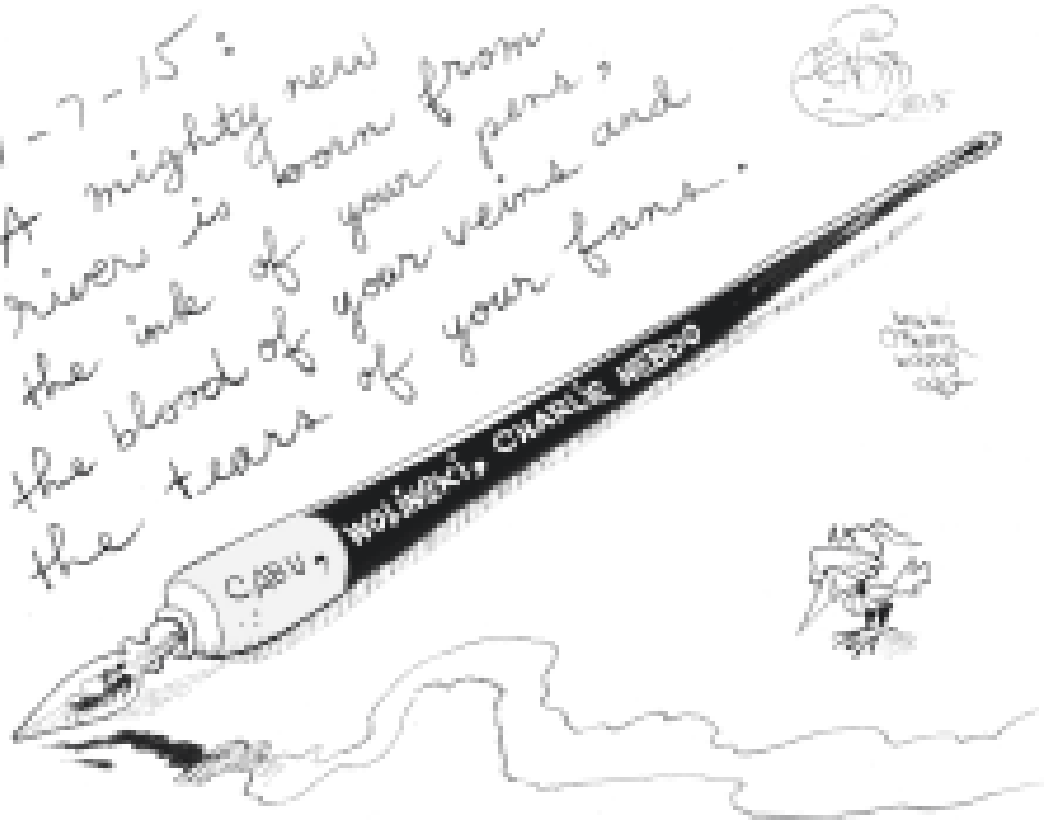 -7-15:
A mighty new
river is born from
the ink of your pens,
the blood of your veins and
the tears of your fans.
CABU, WOLINSKI, CHARLIE HEBDO